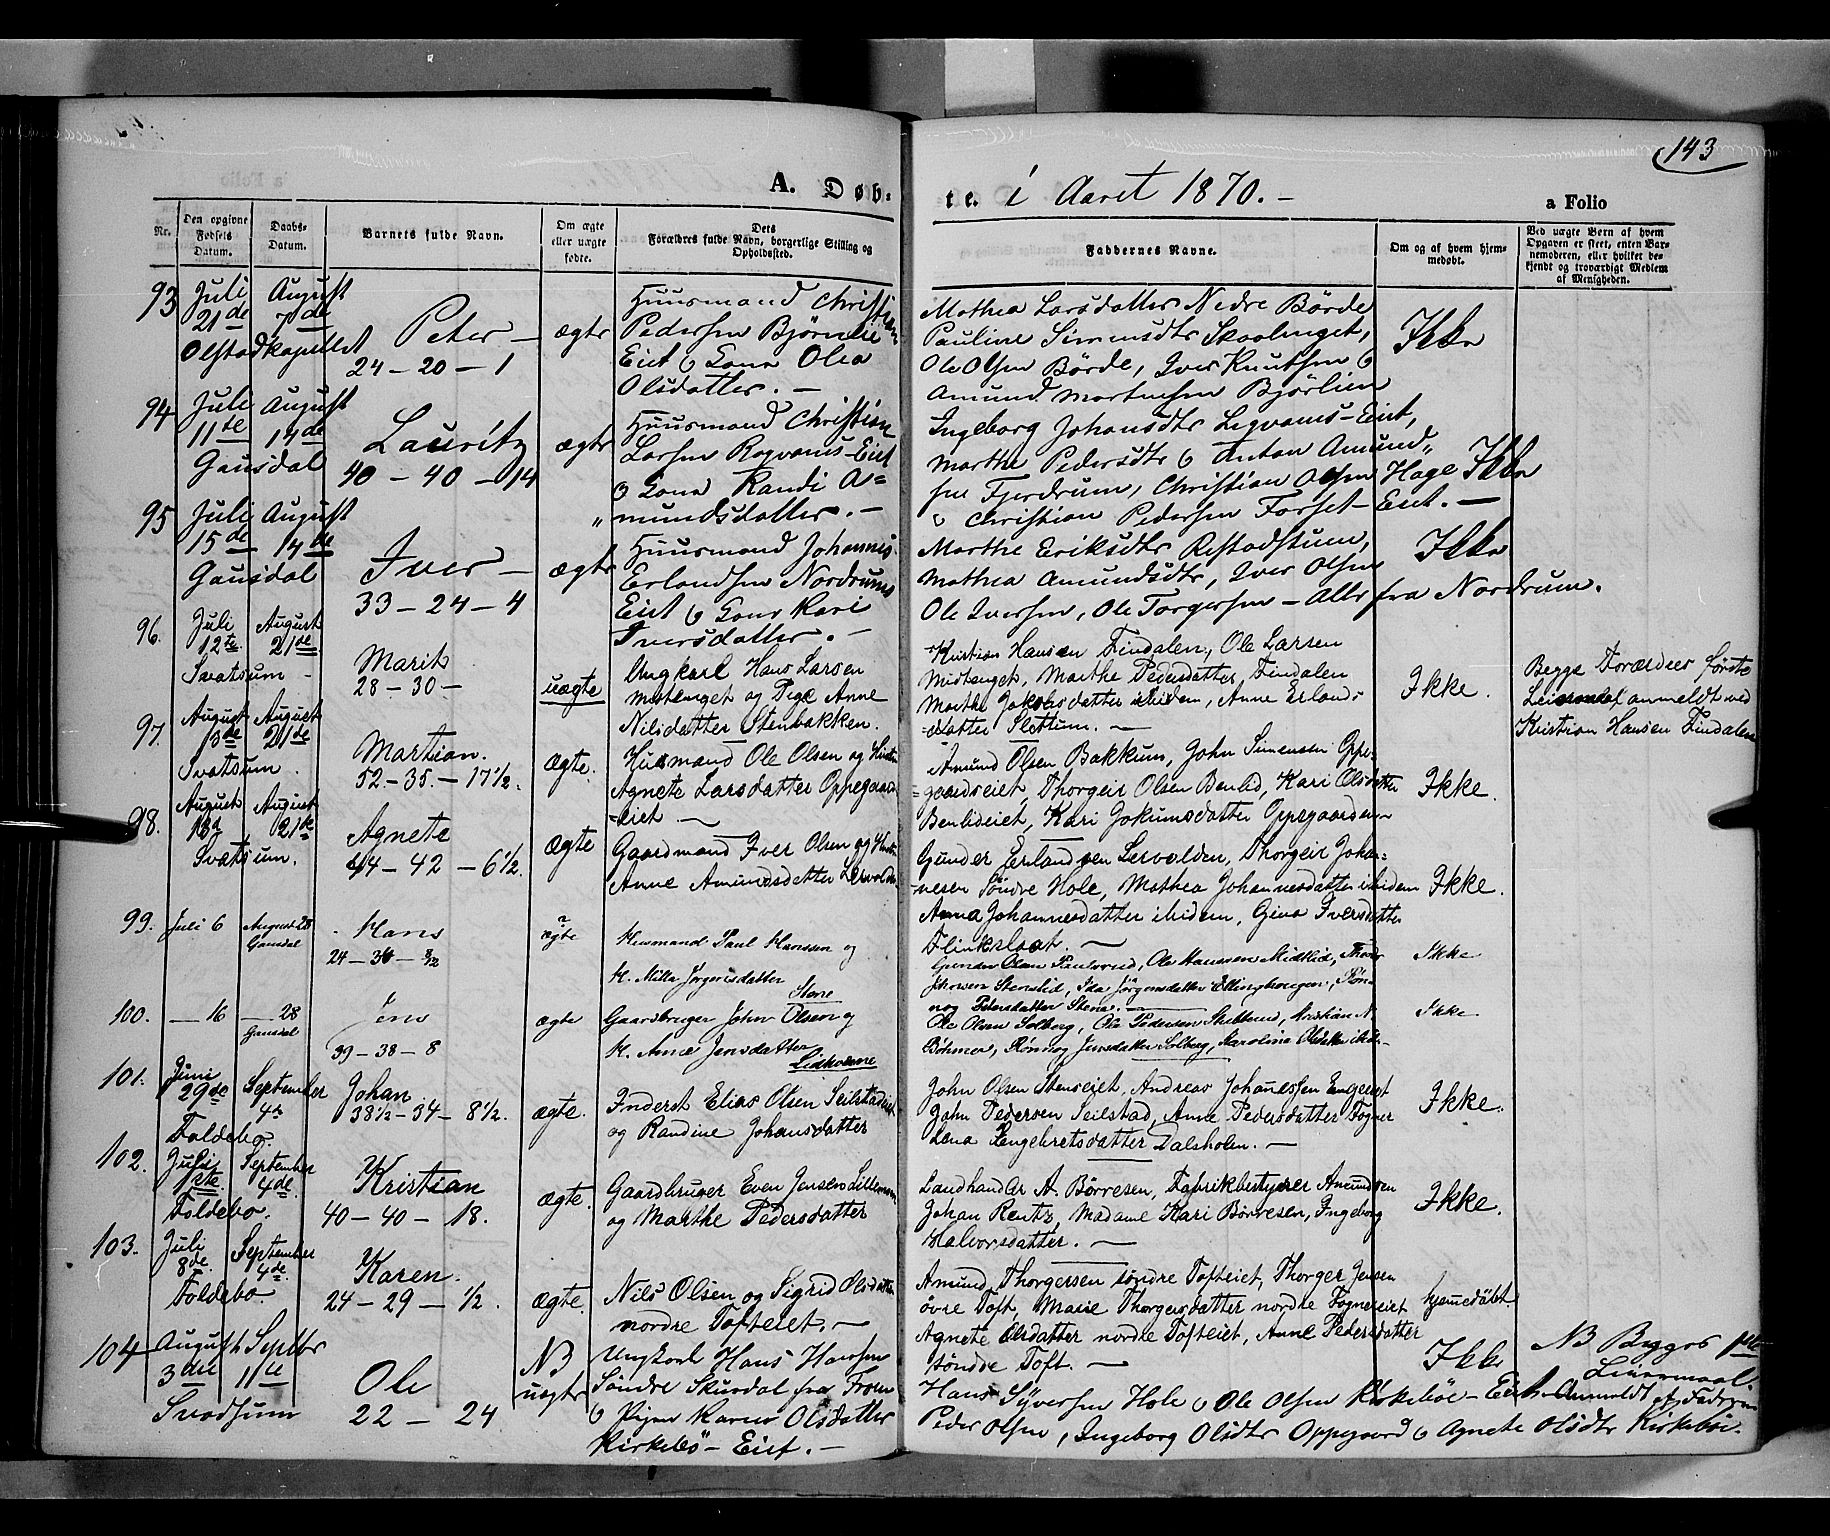 143
A. Døb=
te. i Aaret 1870. -
a Folio
Nr.
Den opgivne Fødsels Datum.
Daabs-Datum.
Barnets fulde Navn.
Om ægte eller uægte fødte.
Dets Forældres fulde Navn, borgerlige Stilling og Opholdssted.
Faddernes Navne.
Om og af hvem hjemmedøbt.
Ved uægte Børn af hvem Opgaven er skeet, enten Barnemoderen, eller hvilket bekjendt og troværdigt Medlem af Menigheden.
93 Juli 21de August 7de
Olstadkapellet
Peter -
24 - 20 - 1
ægte
Huusmand Christian
Pedersen Bjørnlie
Eiet & Cona Olea
Olsdatter. -
Mathea Larsdatter Nedre Børde
Pauline Simensdtr Skoolenget,
Ole Olsen Börde, Iver Knutsen &
Amund Mortensen Bjørlien
Ikke
94 Juli 11te August 14de
Gausdal
Lauritz
40 - 40 - 14
ægte
Huusmand Christian
Larsen Rogvams-Eiet
& Cona Randi A=
mundsdatter. -
Ingeborg Johansdtr Legvams-Eiet,
Marthe Pedersdtr & Anton Amund„
sen Fjerdrum, Christian Olsen Hage
& Christian Pedersen Forset-Eiet. -
Ikke
95 Juli 15de August 14de
Gausdal
Iver -
33 - 24 - 4
ægte
Huusmand Johannes
Erlandsen Nordrums
Eiet & Cona Kari
Iversdatter. -
Marthe Eriksdtr Restadstuen,
Mathea Amundsdtr, Iver Olsen
Ole Iversen, Ole Torgersen - Alle fra Nordrum.
Ikke
96. Juli 12te August 21de
Svatsum -
Marit
28 - 30 -
uægte
Ungkarl Hans Larsen
Midtenget og Pige Anne
Nilsdatter Stenbakken.
Kristian Hansen Findalen, Ole Larsen
Midtenget, Marthe Pedersdatter, Findalen
Marthe Jakobsdatter ibidem, Anne Erlands
datter Slettum. -
Ikke.
Begge Forældres første
Leiermaal anmeldt ved
Kristian Hansen Findalen
97. August 13de August 21de
Svatsum.
Martian.
52 - 35. - 17½.
ægte.
Husmand Ole Olsen og Hustru
Agnete Larsdatter Oppegaard
=eiet -
Amund Olsen Bakkum, John Simensen Oppe-
=gaardseiet, Thorgeir Olsen Benlid, Kari Olsdatter
Benlideiet, Kari Jokumsdatter Oppegaarden
Ikke.
98. August August 21de
Svatsum.
Agnete
44 - 42 - 6½.
ægte
Gaardmand Iver Olsen og Hustru
Anne Amundsdatter Lervolden
Gunder Erlandsen Lervolden, Thorgeir Johan=
nesen Söndre Hole, Mathea Johannesdatter ibidem
Anna Johannesdatter ibidem, Gina Iversdatter
Flinkslaat. -
Ikke.
99. Juli 6 August 28
Gausdal
Hans
24 - 34 -
ægte
Husmand Paul Hanssen og
H. Mille Jørgensdatter
Stene
Gunder Olsen Paulsrud, Ole Hanssen Midtlid, Thor
Stenslid, Ida Jørgensdatter Ellinghaugen, Røn=
nog Pedersdatter Stene. -
Ikke
100. - 16 - 28
Gausdal
Jens
39 - 38 - 8
ægte
Gaardbruger John Olsen og
H. Anne Jensdatter
Lidholme
Ole Olsen Solberg, Ole Pedersen Skittlund, Kristian N.
Böhmer, Rønnog Jensdatter Solberg, Karoline Olsdatter ibid. -
Ikke
101. Juni 29de September 4de
Foldebo.
Johan
38½ - 34 - 8½.
ægte.
Inderst Elias Olsen Seilstadeiet
og Randine Johansdatter
John Olsen Stenseiet, Andreas Johanessen Engeeiet
John Pedersen Seilstad, Anne Pedersdatter Fogner
Lena Engebretsdatter Dalsholen. -
Ikke.
102. Juli 1ste September 4de
Foldebo.
Kristian
40 - 40 - 18.
ægte.
Gaardbruger Even Jensen Lillemoen
og Marthe Pedersdatter
Landhandler A. Børresen, Fabrikbestyrer Amundsen
Johan Rentz, Madame Kari Børresen, Ingeborg
Halvorsdatter. -
Ikke.
103. Juli 8de. September 4de.
Foldebo.
Karen.
24 - 29 - ½.
ægte.
Nils Olsen og Sigrid Olsdatter
nordre Tofteiet. -
Amund Thorgersen söndre Tofteiet, Thorger Jensen
övre Toft, Marie Thorgersdatter nordre Fognereiet
Agnete Olsdatter nordre Tofteiet, Anne Pedersdatter
söndre Toft. -
hjemedöbt
104 August 3die Septbr 11te
Svadsum
Ole
22 - 24
NB
uægte
Ungkarl Hans Hansen
Søndre Skurdal fra Fron
& Pigen Karen Olsdatter
Kirkebö-Eiet. -
Hans Syversen Hole & Ole Olsen Kirkebøe-Eiet.
Peder Olsen, Ingeborg Olsdtr Oppegaard & Agnete Olsdtr Kirkebøe.
Ikke
NB Begges 1ste
Leiermaal.
Anmeldt af Faderen